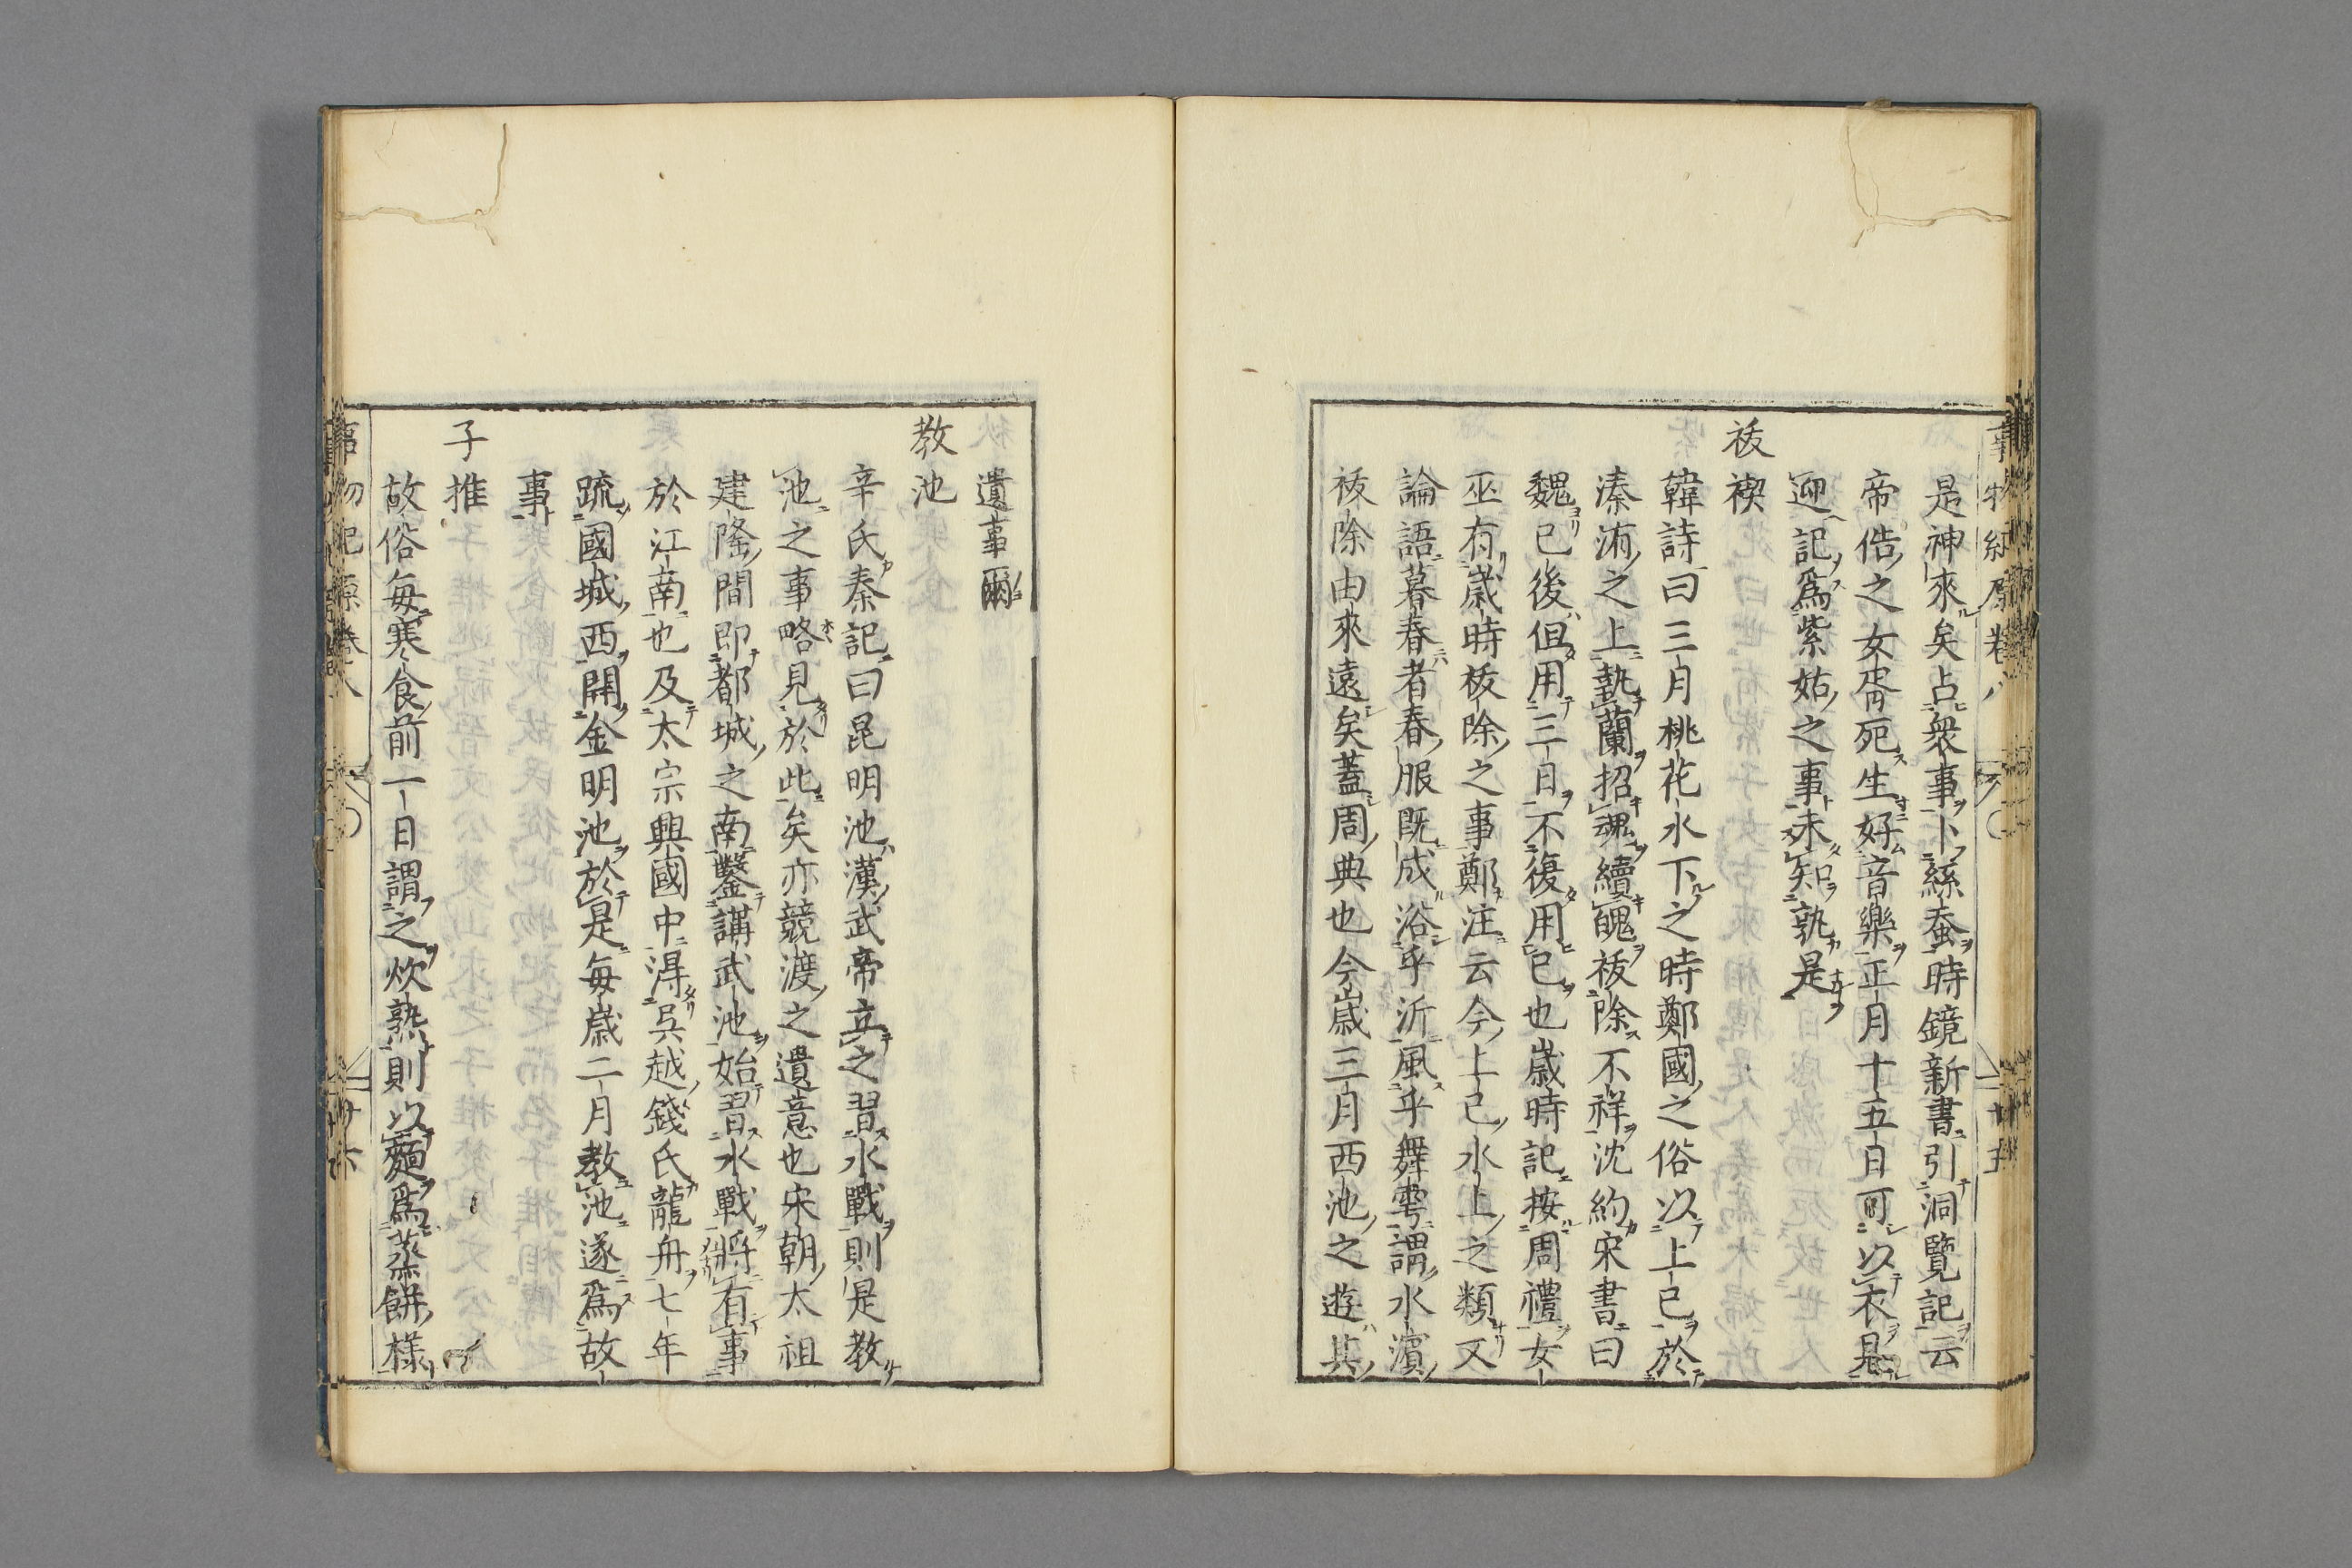 是神來矣占衆事卜絲蚕時鏡新書引洞覽記云
帝俈之女胥死生好音樂正月十五日可以衣是
迎記爲紫姑之事未知孰是
祓禊
韓詩曰三月桃花水下之時鄭國之俗以上巳於
溱洧之上執蘭招魂續魄祓除不祥沈約宋書曰
魏已後但用三日不復用巳也歲時記按周禮女
巫有歲時祓除之事鄭注云今上巳水上之類又
論語暮春者春服既成浴乎沂風乎舞雩謂水濱
祓除由來遠矣蓋周典也今歲三月西池之遊其
遺事爾
教池
辛氏秦記曰昆明池漢武帝立之習水戰則是教
池之事略見於此矣亦競渡之遺意也宋朝太祖
建隆間即都城之南鑿講武池始習水戰將有事
於江南也及太宗興國中得吳越錢氏龍舟七年
疏國城西開金明池於是每歲二月教池遂爲故
事
子推
故俗每寒食前一日謂之炊熟則以麵爲蒸餅樣